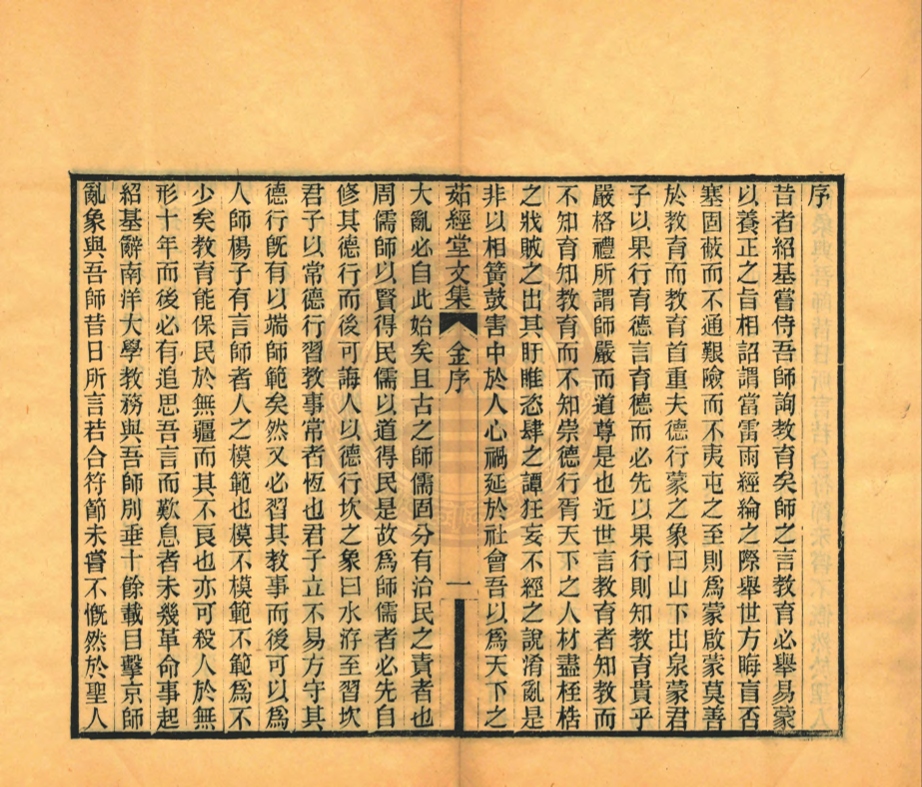 序
昔者紹基嘗侍吾師詢教育矣師之言教育必舉易蒙
以養正之旨相詔謂當雷雨經綸之際舉世方晦盲否
塞固蔽而不通艱險而不夷屯之至則爲蒙啟蒙莫善
於教育而教育首重夫德行蒙之象曰山下出泉蒙君
子以果行育德言育德而必先以果行則知教育貴乎
嚴格禮所謂師嚴而道尊是也近世言教育者知教而
不知育知教育而不知崇德行胥天下之人材盡枉梏
之戕賊之出其盱睢恣肆之譚狂妄不經之說淆亂是
非以相簧鼓害中於人心禍延於社會吾以爲天下之
茹經堂文集 金序 一
大亂必自此始矣且古之師儒固分有治民之責者也
周儒師以賢得民儒以道得民是故爲師儒者必先自
修其德行而後可誨人以德行坎之象曰水洊至習坎
君子以常德行習教事常者恆也君子立不易方守其
德行旣有以端師範矣然又必習其教事而後可以爲
人師楊子有言師者人之模範也模不模範不範爲不
少矣教育能保民於無疆而其不良也亦可殺人於無
形十年而後必有追思吾言而歎息者未幾革命事起
紹基辭南洋大學教務與吾師別垂十餘載目擊京師
亂象與吾師昔日所言若合符節未嘗不慨然於聖人